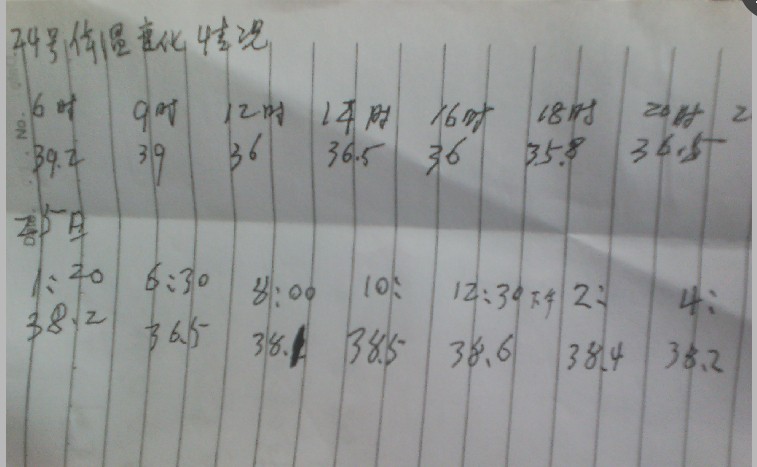 24号体温变化情况
6时 9时 12时 14时 16时 18时 20时 2
39.2 39 36 36.5 36 35.8 36.5
25日
1:20 6:30 8:00 10: 12:30 下午 2: 4:
38.2 36.5 38.1 38.5 38.6 38.4 38.2
No.